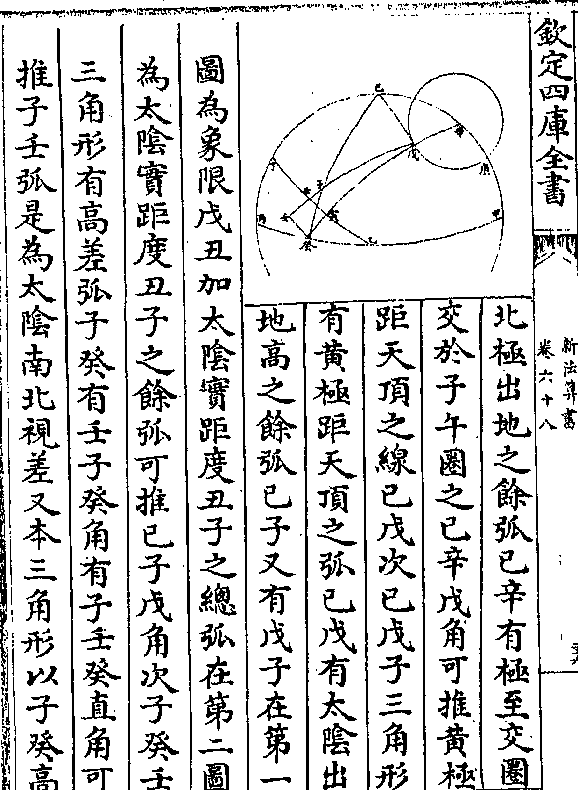 欽定四庫全書
新法算書
卷六十八
北極出地之餘弧已辛有極至交圈
交於子午圈之已辛戊角可推黄極
距天頂之線已戊次已戊子三角形
有黄極距天頂之弧已戊有太陰出
地高之餘弧已子又有戊子在第一
圖為象限戊丑加太陰實距度丑子之總弧在第二圖
為太陰實距度丑子之餘弧可推已子戊角次子癸壬
三角形有高差弧子癸有壬子癸角有子壬癸直角可
推子壬弧是為太陰南北視差又本三角形以子癸高